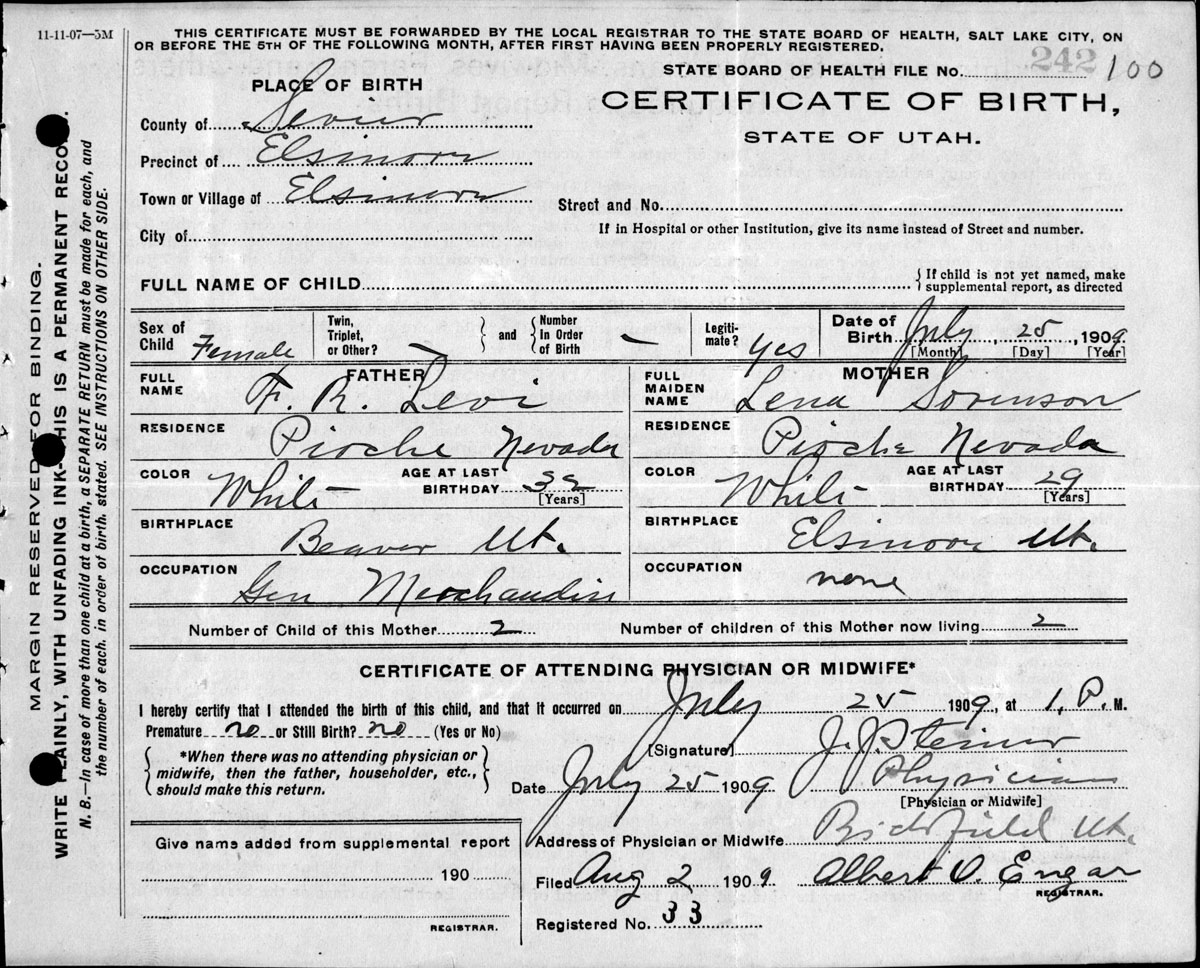 11-11-07—5M
THIS CERTIFICATE MUST BE FORWARDED BY THE LOCAL REGISTRAR TO THE STATE BOARD OF HEALTH, SALT LAKE CITY, ON
OR BEFORE THE 5TH OF THE FOLLOWING MONTH, AFTER FIRST HAVING BEEN PROPERLY REGISTERED.
242
STATE BOARD OF HEALTH FILE No. 100
CERTIFICATE OF BIRTH,
STATE OF UTAH.
PLACE OF BIRTH
County of Sevier
Precinct of Elsinore
Town or Village of Elsinore
Street and No.
City of
If in Hospital or other Institution, give its name instead of Street and number.
FULL NAME OF CHILD
{ If child is not yet named, make
supplemental report, as directed
Sex of Child Female
Twin, Triplet, or Other? } and { Number In Order of Birth —
Legiti-mate? yes
Date of Birth July 25, 1909
[Month] [Day] [Year]
FATHER
FULL NAME F. R. Levi
RESIDENCE Pioche Nevada
COLOR White AGE AT LAST BIRTHDAY 32 [Years]
BIRTHPLACE Beaver Ut.
OCCUPATION Gen Merchandise
MOTHER
FULL MAIDEN NAME Lena Sorenson
RESIDENCE Pioche Nevada
COLOR White AGE AT LAST BIRTHDAY 29 [Years]
BIRTHPLACE Elsinore Ut.
OCCUPATION none
Number of Child of this Mother 2 Number of children of this Mother now living 2
CERTIFICATE OF ATTENDING PHYSICIAN OR MIDWIFE*
I hereby certify that I attended the birth of this child, and that it occurred on July 25 1909, at 1, P. M.
Premature no or Still Birth? no (Yes or No)
{ *When there was no attending physician or
midwife, then the father, householder, etc.,
should make this return. }
[Signature] J. J. Steiner
Physician
Date July 25 1909
[Physician or Midwife]
Address of Physician or Midwife Richfield Ut.
Filed Aug 2 1909 Albert V. Engar
REGISTRAR.
Registered No. 33
Give name added from supplemental report
190
REGISTRAR.
MARGIN RESERVED FOR BINDING.
WRITE PLAINLY, WITH UNFADING INK—THIS IS A PERMANENT RECORD.
N. B.—In case of more than one child at a birth, a SEPARATE RETURN must be made for each, and
the number of each, in order of birth, stated. SEE INSTRUCTIONS ON OTHER SIDE.